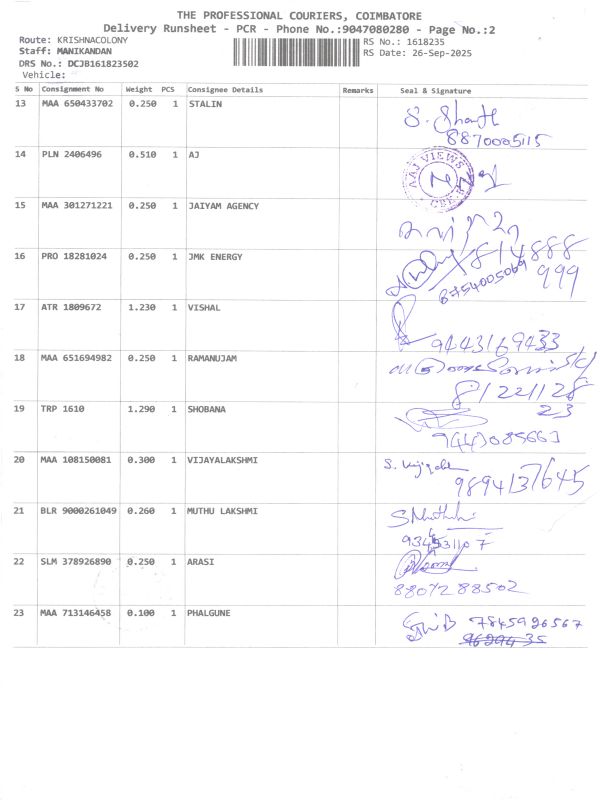 THE PROFESSIONAL COURIERS, COIMBATORE
Delivery Runsheet - PCR - Phone No.:9047080280 - Page No.:2
Route: KRISHNACOLONY
RS No.: 1618235
Staff: MANIKANDAN
RS Date: 26-Sep-2025
DRS No.: DCJB161823502
Vehicle:
S No Consignment No Weight PCS Consignee Details Remarks Seal & Signature
13 MAA 650433702 0.250 1 STALIN
8870005115
14 PLN 2406496 0.510 1 AJ
AAJ VIEWS
15 MAA 301271221 0.250 1 JAIYAM AGENCY
16 PRO 18281024 0.250 1 JMK ENERGY
814888
999
8754005069
17 ATR 1809672 1.230 1 VISHAL
9443169433
18 MAA 651694982 0.250 1 RAMANUJAM
81221128
23
19 TRP 1610 1.290 1 SHOBANA
20 MAA 108150081 0.300 1 VIJAYALAKSHMI
9894137645
21 BLR 9000261049 0.260 1 MUTHU LAKSHMI
22 SLM 378926890 0.250 1 ARASI
8807288502
23 MAA 713146458 0.100 1 PHALGUNE
7845926567